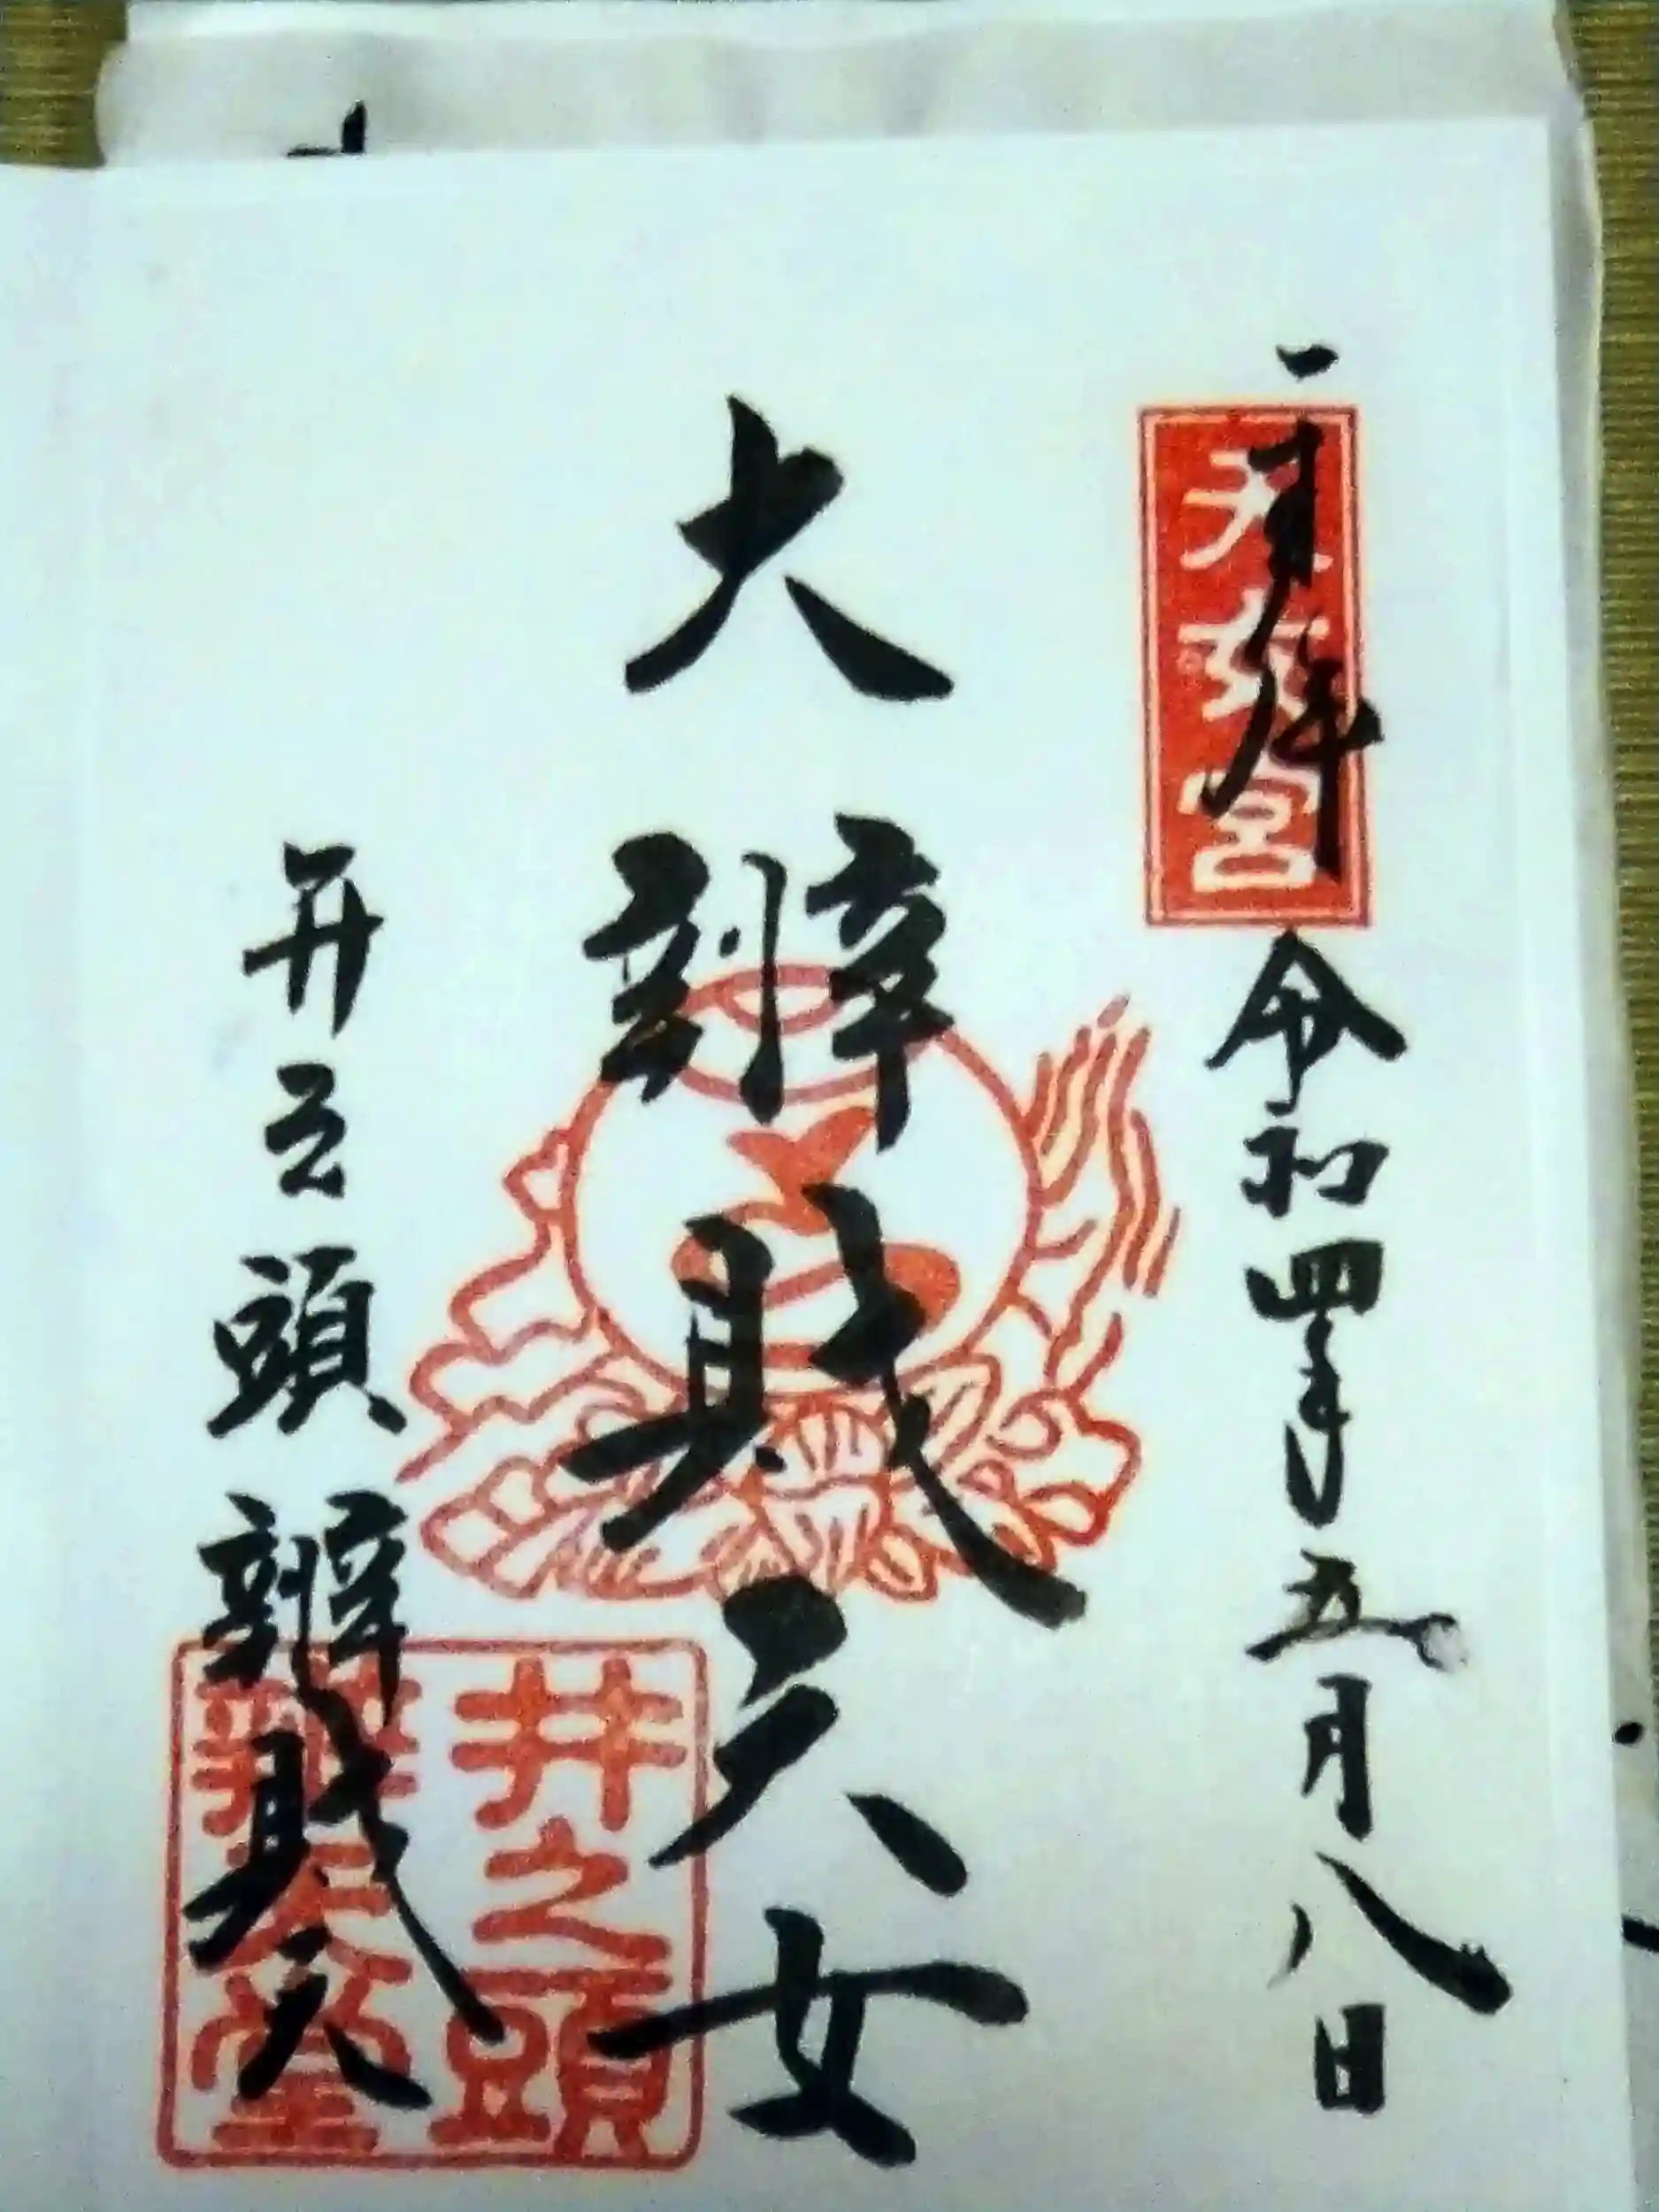 奉拝 令和四年五月八日
大辨財天女
井之頭辨財天
井之頭
辨天堂